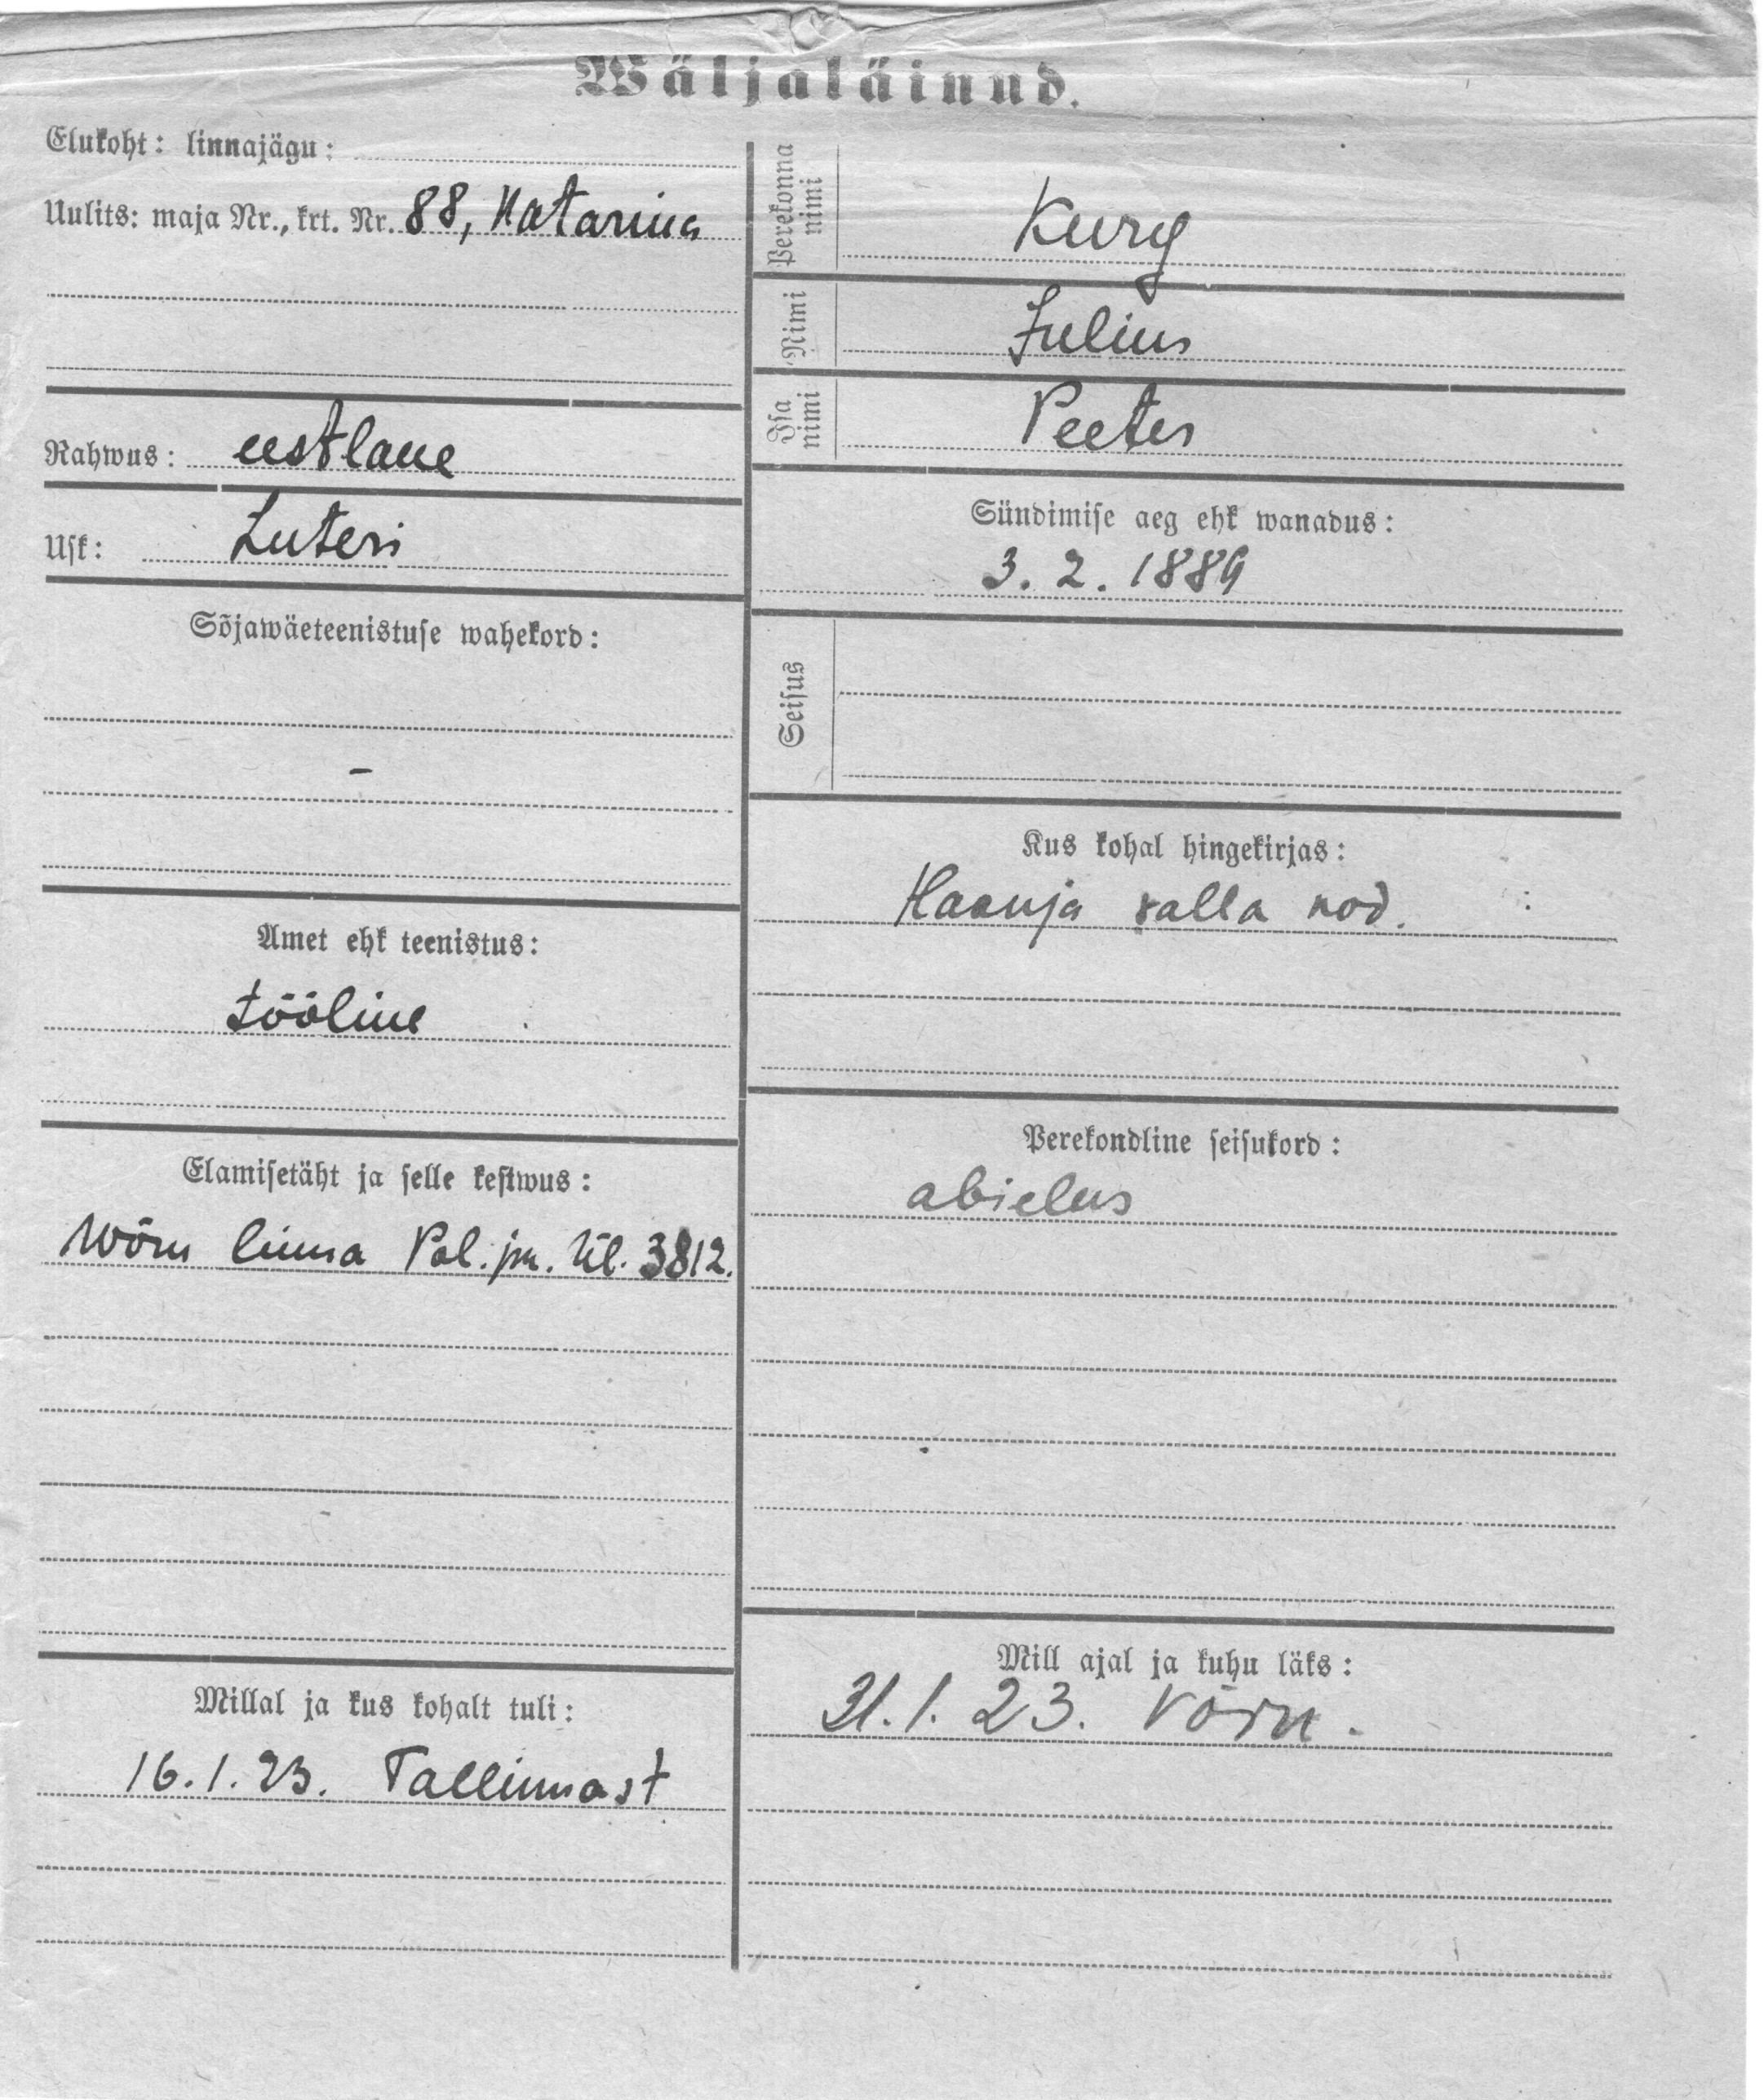 Wäljaläinud.
Elukoht: linnajägu:
Uulits: maja Nr., krt. Nr. 88, Katarina
Rahwus: eestlane
Usk: Luteri
Sõjawäeteenistuse wahekord:
–
Amet ehk teenistus:
tööline
Elamisetäht ja selle kestwus:
Wõru linna Pol. jsk. 3812.
Millal ja kus kohalt tuli:
16.1.23. Tallinnast
Perekonna nimi
Kurg
Nimi
Julius
Isa nimi
Peeter
Sündimise aeg ehk wanadus:
3. 2. 1889
Seisus
Kus kohal hingekirjas:
Haanja valla kod.
Perekondline seisukord:
abielus
Mill ajal ja kuhu läks:
31.1.23. Võru.